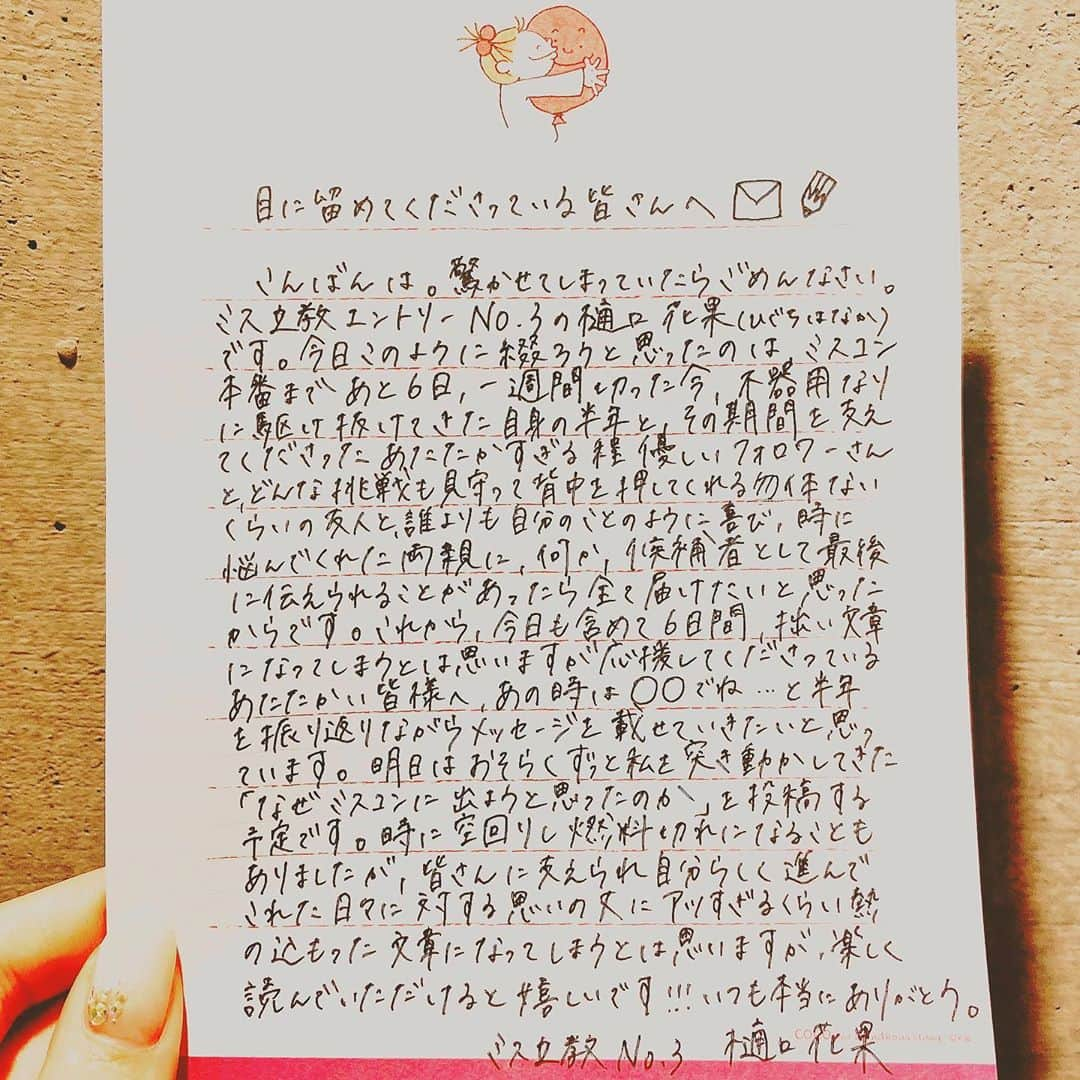 目に留めてくださっている皆さんへ
こんばんは。驚かせてしまっていたらごめんなさい。
ミス立教エントリーNo.3の樋口花果(ひぐちはなか)
です。今日このように綴ろうと思ったのは、ミスコン
本番まであと6日、一週間切った今、不器用なり
に駆け抜けてきた自身の半年と、その期間を支え
てくださったあたたかすぎる程優しいフォロワーさん
と、どんな挑戦も見守って背中を押してくれる勿体ない
くらいの友人と、誰よりも自分のことのように喜び、時に
悩んでくれた両親に、何か、候補者として最後
に伝えられることがあったら全て届けたいと思った
からです。これから、今日も含めて6日間、拙い文章
になってしまうとは思いますが応援してくださっている
あたたかい皆様へ、あの時は〇〇でね…と半年
を振り返りながらメッセージを載せていきたいと思っ
ています。明日はおそらくずっと私を突き動かしてきた
「なぜミスコンに出ようと思ったのか」を投稿する
予定です。時に空回りし燃料切れになることも
ありましたが、皆さんに支えられ自分らしく進んで
これた日々に対する思いの丈にアツすぎるくらい熱
の込もった文章になってしまうとは思いますが、楽しく
読んでいただけると嬉しいです!!!いつも本当にありがとう。
ミス立教 No.3 樋口花果